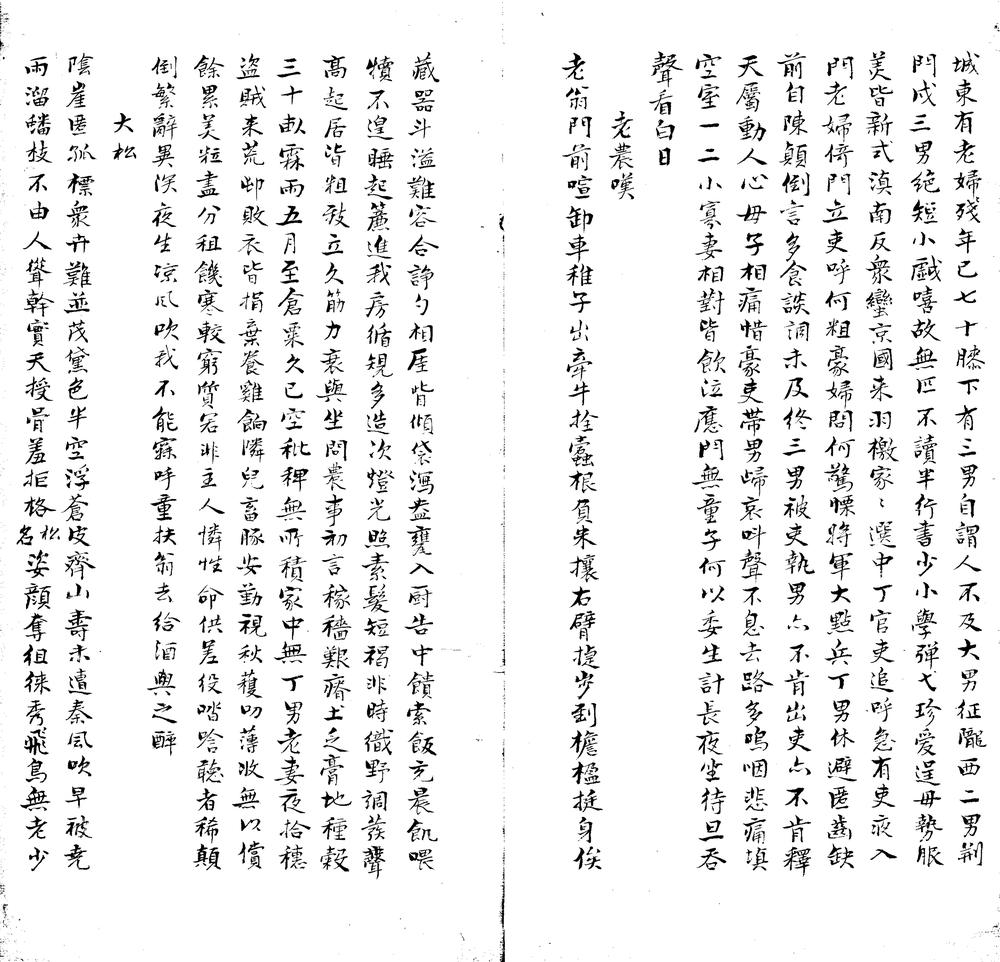 城東有老婦殘年已七十膝下有三男自謂人不及大男征隴西二男荆
門戍三男絕短小戲嘻故無匹不讀半行書少小學彈弋珍愛逞毋勢服
美皆新式滇南反衆蠻京國来羽檄家〻選中丁官吏追呼急有吏夜入
門老婦倚門立吏呼何粗豪婦問何驚慄將軍大㸃兵丁男休避匿齒缺
前自陳顛倒言多食談調未及終三男被吏執男亦不肯出吏亦不肯釋
天屬動人心毋子相痛惜豪吏帶男歸哀呌聲不息去路多嗚咽悲痛填
空室一二小寡妻相對皆飲泣應門無童子何以委生計長夜坐待旦吞
聲看白日
老農嘆
老翁門前喧卸車稚子出牽牛拴蠹根負朱攘右臂㨗步到檐楹挺身俟
藏器斗溢難容合諍勺相厓皆傾袋瀉盎甕入厨告中饋索飯充晨飢喂
犢不遑睡起簾進我房循規多造次燈光照素髮短褐非時織野調羨聱
高起居皆粗敖立久筋力衰與坐問農事初言稼穡艱瘠土乏膏地種穀
三十畝霖雨五月至倉粟久已空秕稗無所積家中無丁男老妻夜拾穗
盜賊来荒邨敗衣皆捐棄養雞餉隣兒畜豚安勤視秋穫叨薄收無以償
餘累美粒盡分租饑寒較窮質君非主人憐性命供差役喈唅聽者稀顛
倒繁辭異深夜生凉風吹我不能寐呼童扶翁去給酒與之醉
大松
陰崖匿孤標衆卉難並茂黛色半空浮蒼皮齊山壽未遭秦風吹早被堯
雨溜蟠枝不由人聳幹實天授骨羞拒格松名姿顔奪徂徠秀飛鳥無老少